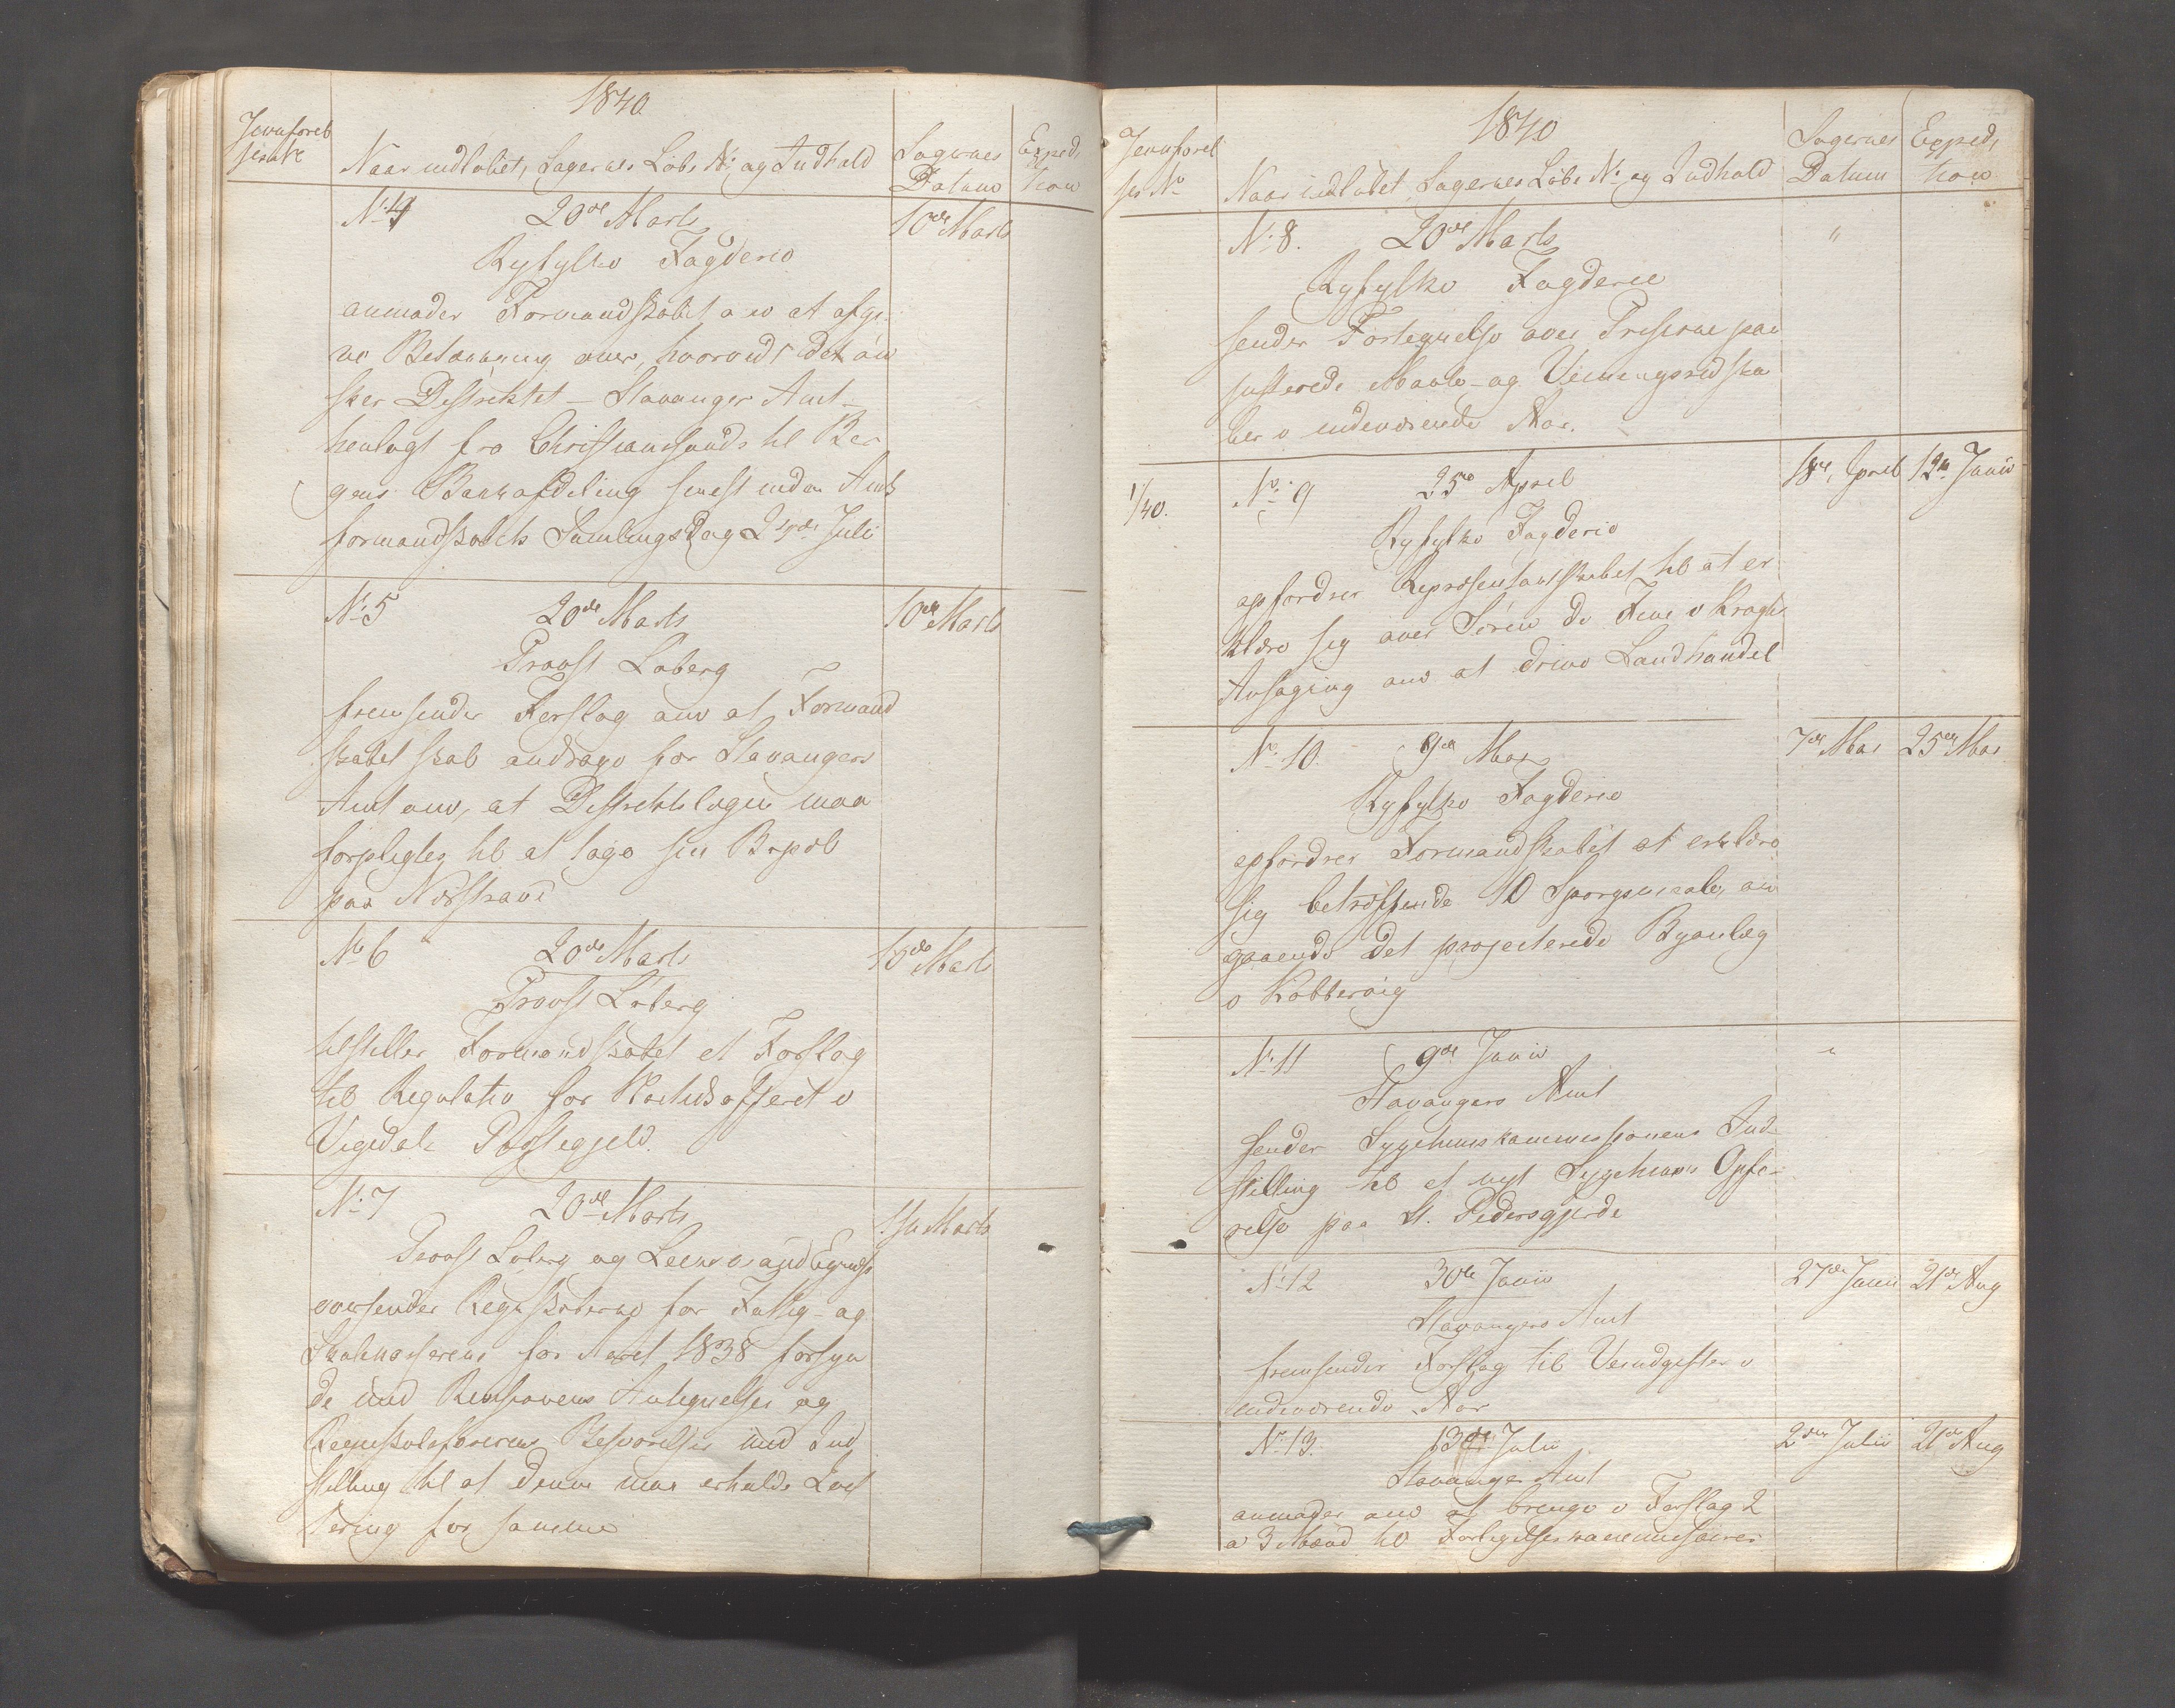 1840
Jevnførel
ses No
Naar indløbet, Sagernes Løbe No og Indhold
Sagernes
Datum
Exped,
tion
No 4 20de Marts
10de Marts
Ryfylke Fogderie
anmoder Formandskabet om at afgi-
ve Betænkning over, hvorvidt det øn
sker Distriktet - Stavanger Amt -
henlagt fra Christianssands til Ber
gens Bankafdeling senest inden Amts
formandskabets Samlingsdag 2den Juli
No 5 20de Marts
10de Marts
Provst Løberg
fremsender Forslag om at Formand
skabet skal andrage for Stavangers
Amt om, at Distriktslægen maa
forpligtes til at tage sin Bopæl
paa Nerstrand
No 6 20de Marts
13de Marts
Provst Løberg
tilstiller Formandskabet et Forslag
til Regulativ for Høitidsofferet i
Vigedals Præstegjeld.
No 7 20de Marts
Marts
Provst Løberg og Leensmand
oversender Regnskaberne for Fattig- og
Skolekasserene for Aaret 1838 forsyn
de med Revisionens Antegnelser og
Regnskabsførerens Besvarelser med Ind
stilling til at denne maa erholde Qvit
tering for samme
1840
Jevnførel
ses No
Naar indløbet, Sagernes Løbe No og Indhold
Sagernes
Datum
Exped,
tion
No 8. 20de Marts
"
Ryfylke Fogderie
sender Fortegnelse over Priserne paa
justerede Maale- og Veiningsredska
ber i indeværende Aar.
1/40.
No 9 25de April
18de April 12te Junii
Ryfylke Fogderie
opfordrer Repræsentantskabet til at er
klære sig over Søren de Fine i Krage
Ansøgning om at drive Landhandel
No 10. 9de Mai
7de Mai 25de Mai
Ryfylke Fogderie
opfordrer Formandskabet at erklære
sig betræffende 10 Spørgsmaale, an
gaaende det projecterede Byanlæg
i Kobbervig
No 11 9de Junii
"
Stavangers Amt
sender Sygehuuskommissionens Ind-
stilling til et nyt Sygehuus Opfø-
relse paa St. Pedersgjerde
No 12 30te Junii
27de Junii 21de Aug
Stavangers Amt
fremsender Forslag til Veiudgifter i
indeværende Aar
No 13. 13de Julii
2den Julii 21de Aug
Stavanger Amt
anmoder om at bringe i Forslag 2
a 3 Mænd til Forligelseskommissairer